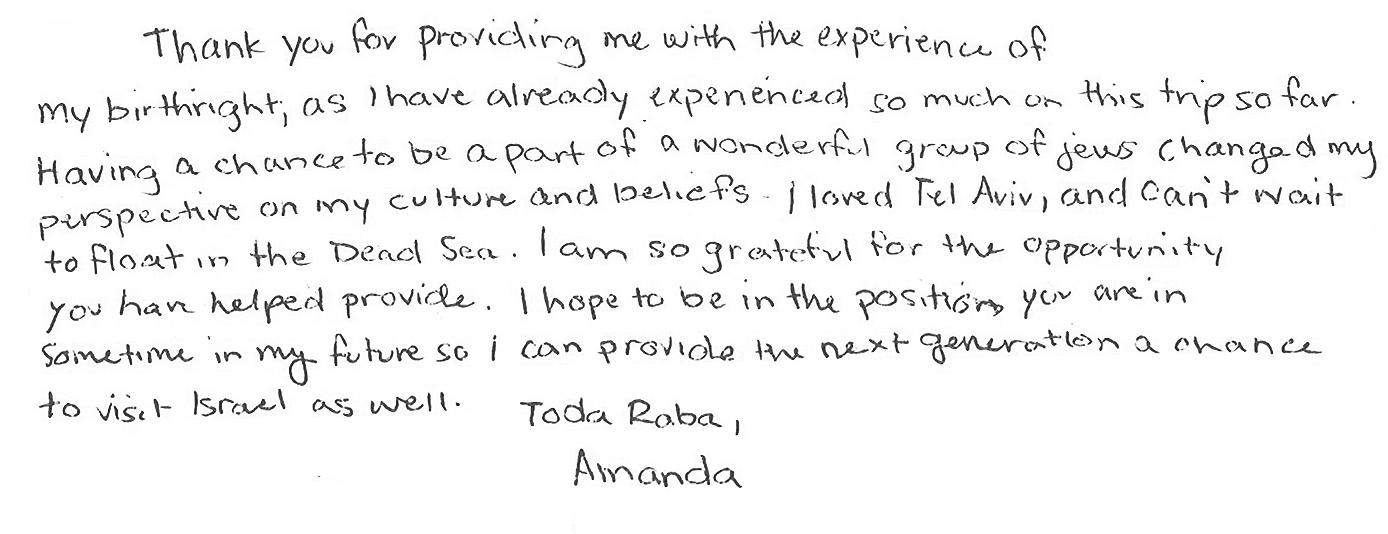 Thank you for providing me with the experience of
my birthright, as I have already experienced so much on this trip so far.
Having a chance to be a part of a wonderful group of jews changed my
perspective on my culture and beliefs. I loved Tel Aviv, and can't wait
to float in the Dead Sea. I am so grateful for the opportunity
you have helped provide. I hope to be in the position you are in
sometime in my future so I can provide the next generation a chance
to visit Israel as well. Toda Raba,
Amanda